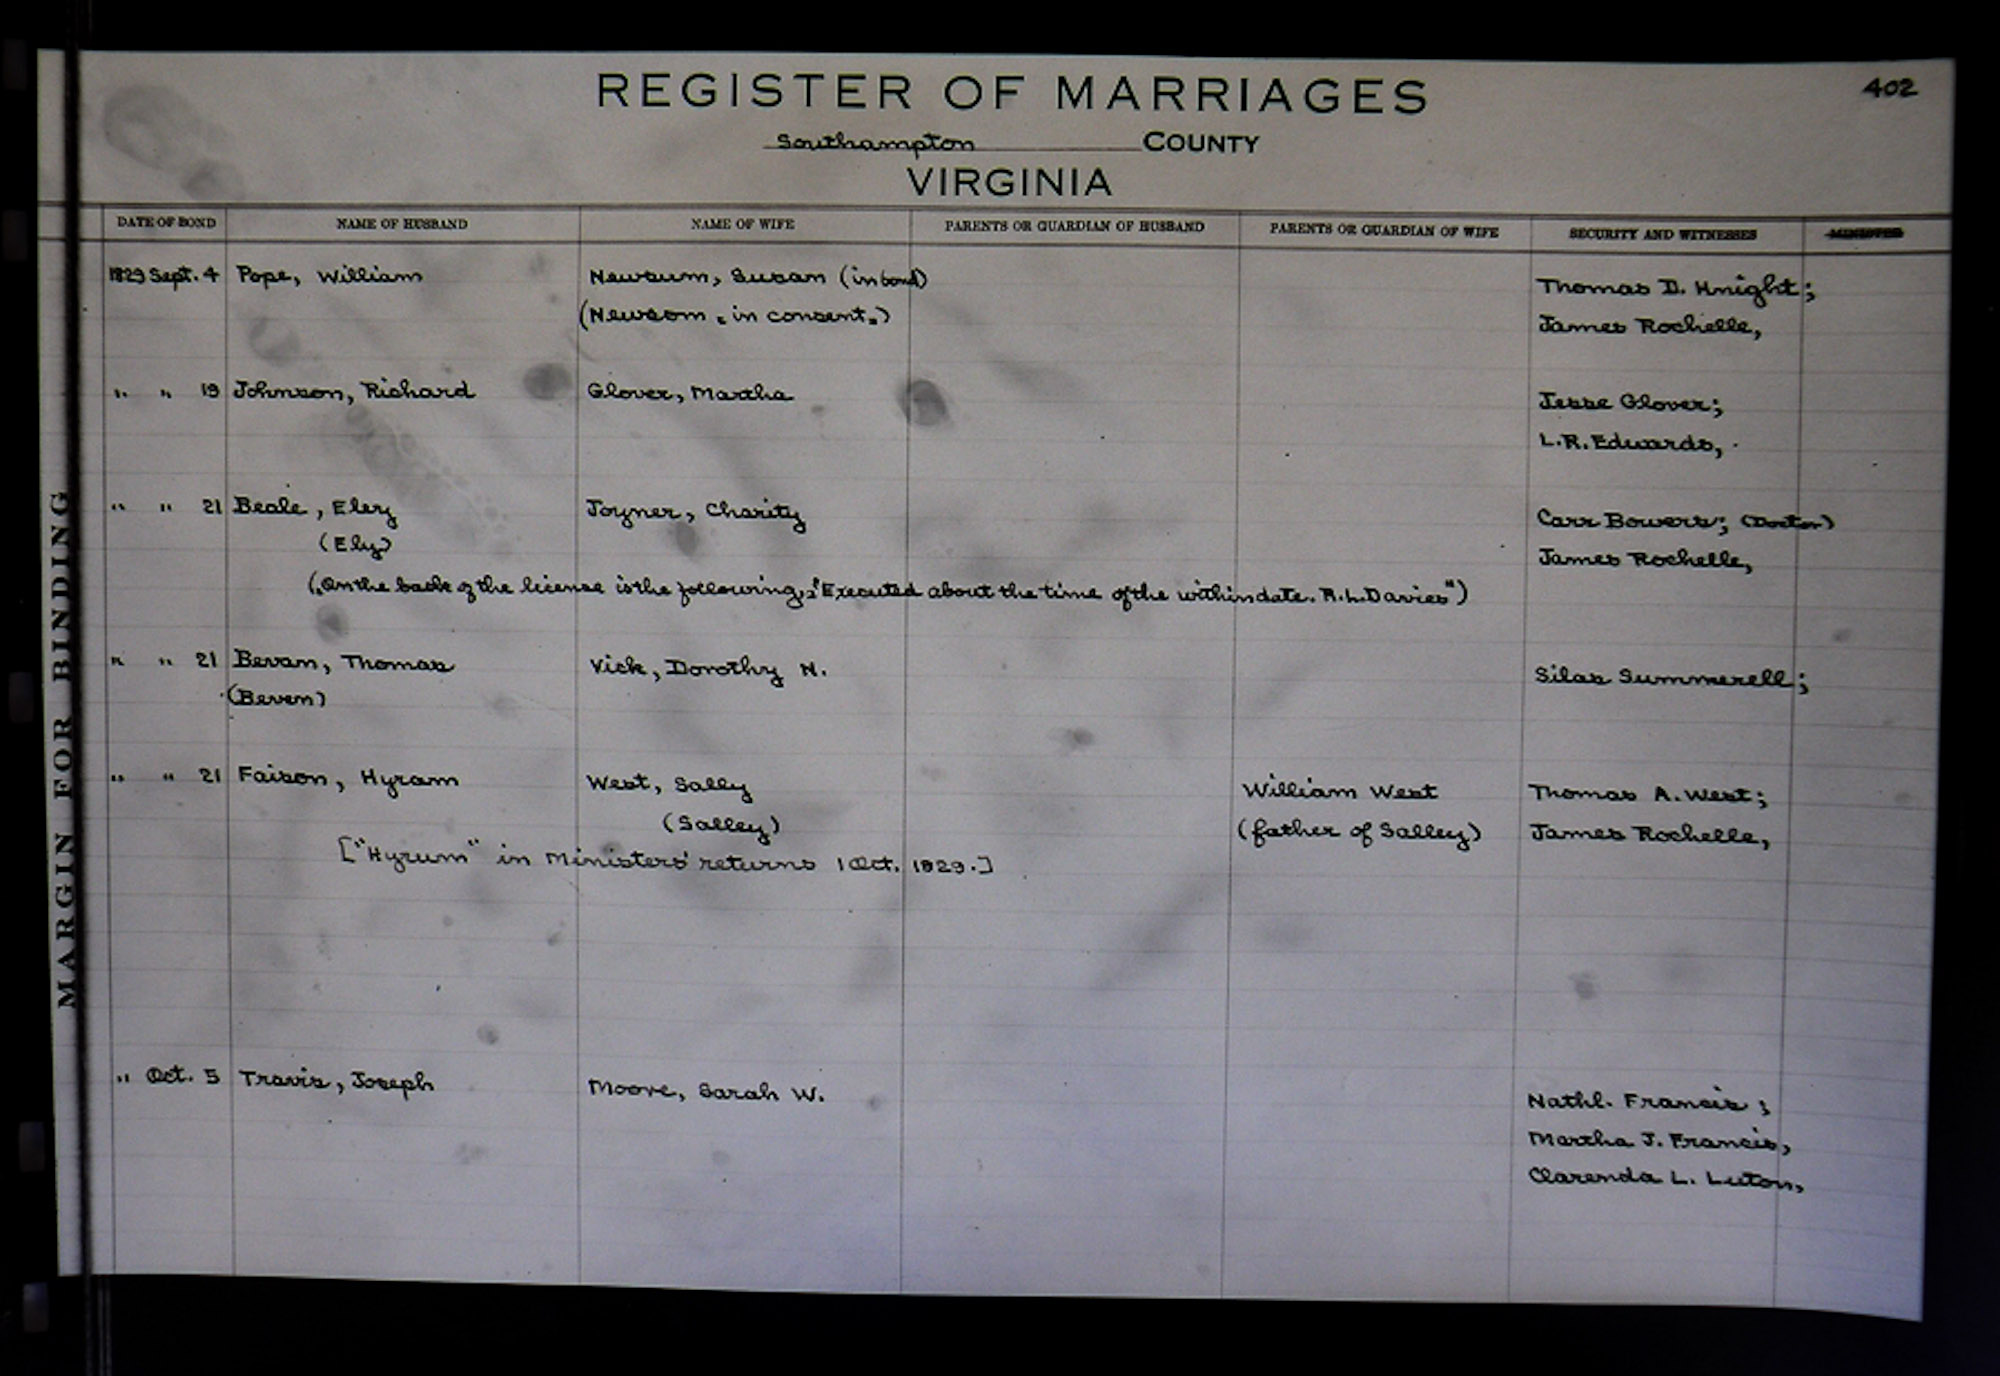 REGISTER OF MARRIAGES
402
Southampton COUNTY
VIRGINIA
DATE OF BOND NAME OF HUSBAND NAME OF WIFE PARENTS OR GUARDIAN OF HUSBAND PARENTS OR GUARDIAN OF WIFE SECURITY AND WITNESSES MINISTER
1829 Sept. 4 Pope, William Newsum, Susan (in bond) Thomas D. Knight;
(Newsom " in consent") James Rochelle,
" " 19 Johnson, Richard Glover, Martha Jesse Glover;
L.R. Edwards,
" " 21 Beale, Elery Joyner, Charity Carr Bowers; (Doctor)
(Ely) James Rochelle,
(On the back of the license is the following, "Executed about the time of the within date. R.L. Davies")
" " 21 Bevan, Thomas Vick, Dorothy N. Silas Summerell;
(Beven)
" " 21 Faison, Hyram West, Sally William West Thomas A. West;
(Salley) (father of Salley) James Rochelle,
["Hyrum" in Ministers' returns 1 Oct. 1829.]
" Oct. 5 Travis, Joseph Moore, Sarah W. Nathl. Francis;
Martha J. Francis,
Clarenda L. Luton,
MARGIN FOR BINDING